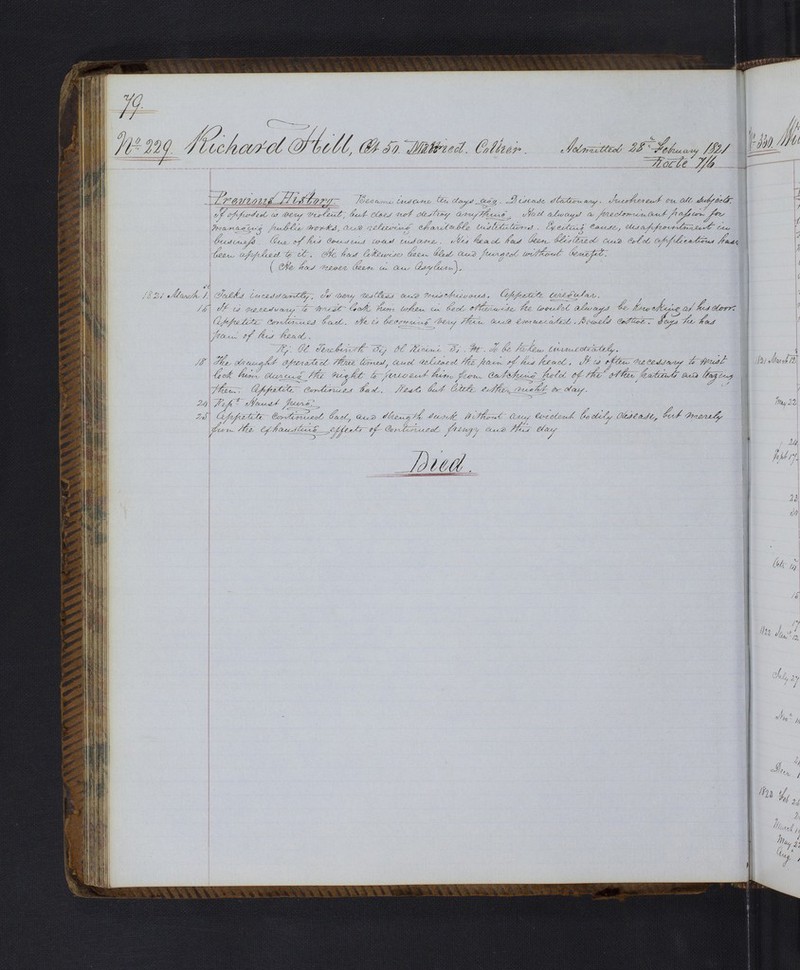 79.
No 229 Richard Hill, Æt 50. Married. Admitted 28th February 1821
7/6
Previous History Became insane ten days ago. Disease stationary. Incoherent on all subjects.
If opposed is very violent, but does not destroy anything. Had always a predominant passion for
managing public works, and relieving charitable institutions. Exciting cause, disappointment in
business. One of his cousins was insane. His head has been blistered and cold applications have
been applied to it. He has likewise been bled and purged without benefit.
(He has never been in an Asylum).
1821 March 1. Talks incessantly. Is very restless and mischievous. Appetite irregular.
15 It is necessary to wrist lock him when in bed otherwise he would always be knocking at his door.
Appetite continues bad. He is becoming very thin and emaciated. Bowels costive. Says he has
pain of his head.
Ol Terebinth Ol Ricini To be taken immediately.
18 The draught operated three times, and relieved the pain of his head. It is often necessary to wrist
lock him during the night to prevent him from catching hold of the other patients and
them. Appetite continues bad. Rests but little either night or day.
24 Rept Haust
25 Appetite continued bad, and strength sunk without any evident bodily disease, but merely
from the exhausting effects of continued frenzy and this day
Died.